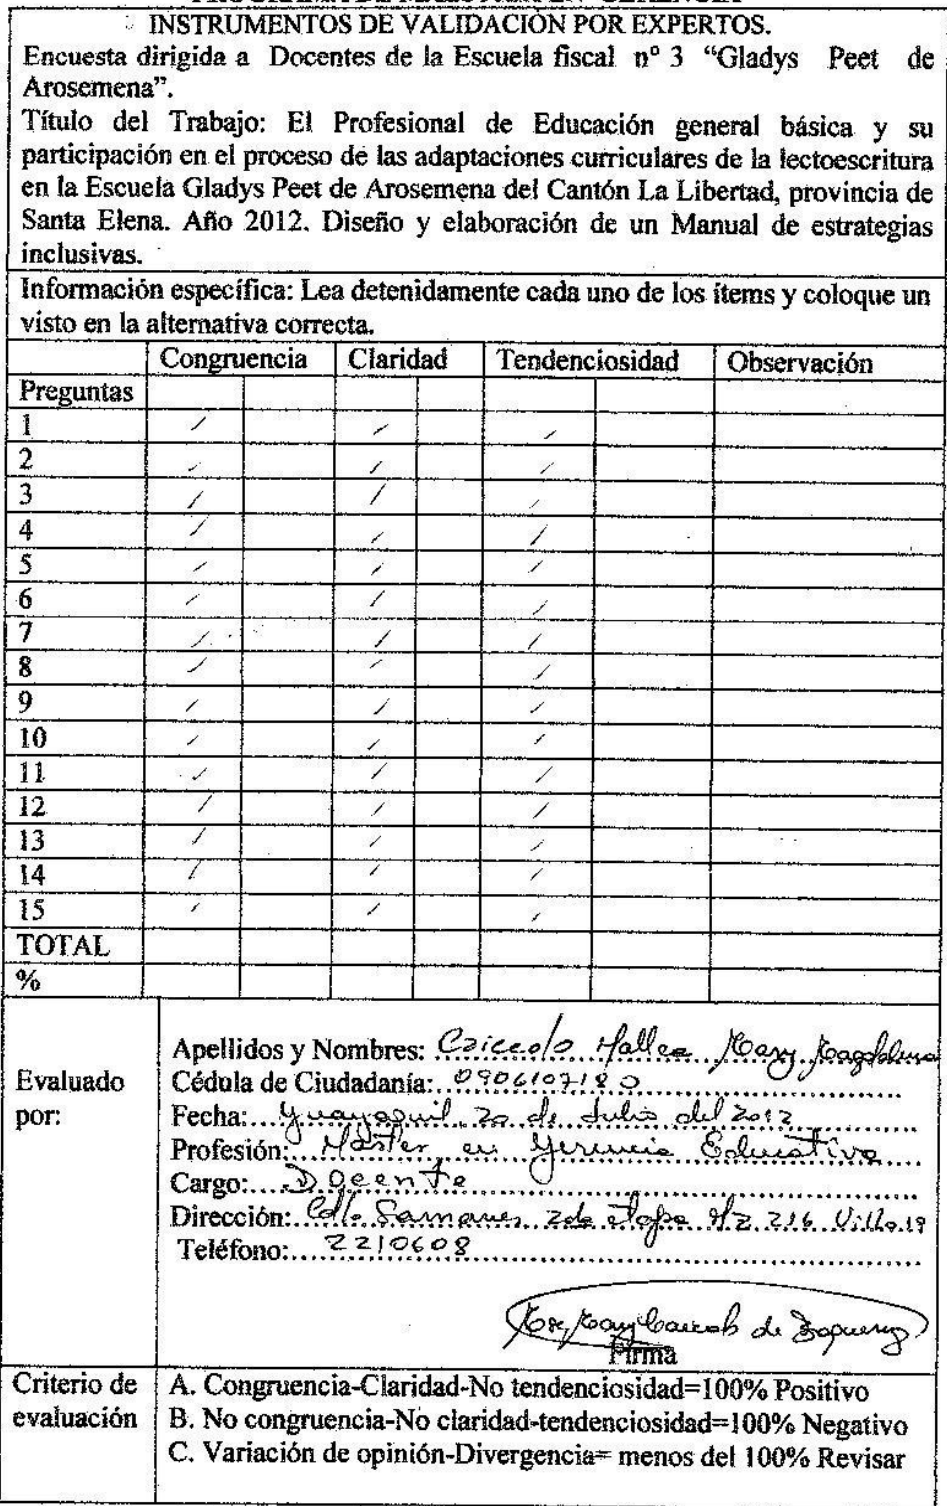 INSTRUMENTOS DE VALIDACIÓN POR EXPERTOS.
Encuesta dirigida a Docentes de la Escuela fiscal nº 3 “Gladys Peet de
Arosemena”.
Título del Trabajo: El Profesional de Educación general básica y su
participación en el proceso de las adaptaciones curriculares de la lectoescritura
en la Escuela Gladys Peet de Arosemena del Cantón La Libertad, provincia de
Santa Elena. Año 2012. Diseño y elaboración de un Manual de estrategias
inclusivas.
Información específica: Lea detenidamente cada uno de los ítems y coloque un
visto en la alternativa correcta.
Congruencia Claridad Tendenciosidad Observación
Preguntas
1 / / /
2 / / /
3 / / /
4 / / /
5 / / /
6 / / /
7 / / /
8 / / /
9 / / /
10 / / /
11 / / /
12 / / /
13 / / /
14 / / /
15 / / /
TOTAL
%
Evaluado
por:
Apellidos y Nombres: Caicedo Mary Magdalena
Cédula de Ciudadanía: 0906107180
Fecha: Guayaquil, 20 de Julio del 2012
Profesión: Máster en Gerencia Educativa
Cargo: Docente
Dirección: Cdla Samanes 2da etapa Mz 216 Villa 19
Teléfono: 2210608
Mary de
Firma
Criterio de
evaluación
A. Congruencia-Claridad-No tendenciosidad=100% Positivo
B. No congruencia-No claridad-tendenciosidad=100% Negativo
C. Variación de opinión-Divergencia= menos del 100% Revisar